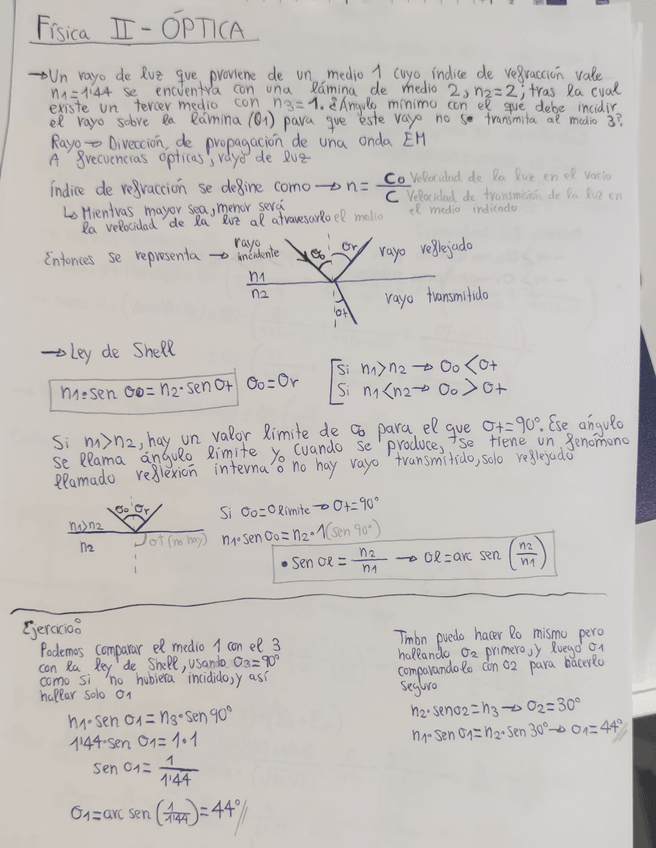 Física II - ÓPTICA
→Un rayo de luz que proviene de un medio 1 cuyo índice de refracción vale
n1=1'44 se encuentra con una lámina de medio 2, n2=2; tras la cual
existe un tercer medio con n3=1. ¿Ángulo mínimo con el que debe incidir
el rayo sobre la lámina (σ1) para que este rayo no se transmita al medio 3?
Rayo→ Dirección, de propagación de una onda EM
A frecuencias ópticas, rayo de luz
índice de refracción se define como → n = Co/C
Velocidad de la luz en el vacío
Velocidad de transmisión de la luz en
el medio indicado
↳ Mientras mayor sea, menor será
la velocidad de la luz al atravesarlo el medio
Entonces se representa → rayo
incidente
σo σr
rayo reflejado
n1
n2
σt
rayo transmitido
→ Ley de Shell
n1·sen σo = n2·sen σt
σo=σr
Si n1>n2 → σo<σt
Si n1<n2 → σo>σt
Si n1>n2, hay un valor límite de σo para el que σt=90º. Ese ángulo
se llama ángulo límite y cuando se produce, se tiene un fenómeno
llamado reflexión interna o no hay rayo transmitido, solo reflejado
σo σr
n1>n2
n2
σt (no hay)
Si σo=σlímite → σt=90º
n1·sen σo=n2·1 (sen 90º)
• sen σl = n2/n1 → σl=arc sen (n2/n1)
Ejercicio:
Podemos comparar el medio 1 con el 3
con la ley de Shell, usando σ3=90º
como si no hubiera incidido, y así
hallar solo σ1
n1·sen σ1=n3·sen 90º
1'44·sen σ1=1·1
sen σ1= 1/1'44
σ1=arc sen (1/1'44)=44º
Tmbn puedo hacer lo mismo pero
hallando σ2 primero, y luego σ1
comparandolo con σ2 para hacerlo
seguro
n2·sen σ2=n3 → σ2=30º
n1·sen σ1=n2·sen 30º → σ1=44º